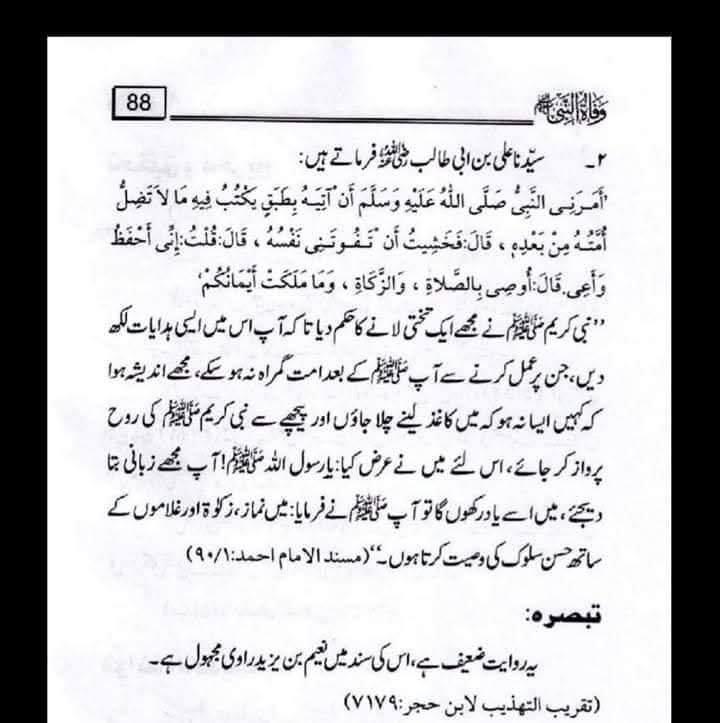 88
وفاة النبی ﷺ
۲۔ سیّدنا علی بن ابی طالب رضی اللہ عنہ فرماتے ہیں:
’أَمَرَنِی النَّبِیُّ صَلَّی اللّٰہُ عَلَیْہِ وَسَلَّمَ أَن آتِیَہُ بِطَبَقٍ یَکْتُبُ فِیہِ مَا لَا تَضِلُّ
أُمَّتُہُ مِنْ بَعْدِہٖ ، قَالَ:فَخَشِیتُ أَن تَفُوتَنِی نَفْسُہُ ، قَالَ:قُلْتُ:إِنِّی أَحْفَظُ
وَأَعِی.قَالَ:أُوصِی بِالصَّلَاۃِ ، وَالزَّکَاۃِ ، وَمَا مَلَکَتْ أَیْمَانُکُمْ‘
’’نبی کریم ﷺ نے مجھے ایک تختی لانے کا حکم دیا تا کہ آپ اس میں ایسی ہدایات لکھ
دیں، جن پر عمل کرنے سے آپ ﷺ کے بعد امت گمراہ نہ ہو سکے، مجھے اندیشہ ہوا
کہ کہیں ایسا نہ ہو کہ میں کاغذ لینے چلا جاؤں اور پیچھے سے نبی کریم ﷺ کی روح
پرواز کر جائے، اس لئے میں نے عرض کیا: یا رسول اللہ ﷺ! آپ مجھے زبانی بتا
دیجئے، میں اسے یاد رکھوں گا تو آپ ﷺ نے فرمایا: میں نماز، زکوٰۃ اور غلاموں کے
ساتھ حسن سلوک کی وصیت کرتا ہوں۔‘‘(مسند الامام احمد:۹۰/۱)
تبصرہ:
یہ روایت ضعیف ہے، اس کی سند میں نعیم بن یزید راوی مجہول ہے۔
(تقریب التھذیب لابن حجر:۷۱۷۹)